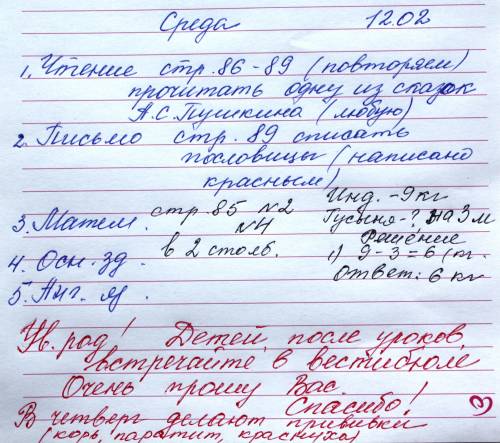 Среда 12.02
1. Чтение стр. 86-89 (повторяем)
прочитать одну из сказок
А.С. Пушкина (любую)
2. Письмо стр. 89 списать
пословицы (написано
красным)
3. Матем. стр. 85 №2
№4
в 2 столб.
Инд. - 9 кг
Гусыня - ? на 3 м
Решение
1) 9 - 3 = 6 (
Ответ: 6 кг
4. Осн. зд.
5. Анг. яз.
Ув. род! Детей после уроков
встречайте в вестибюле
Очень прошу Вас
Спасибо!
В четверг делают прививки
(корь, паратит, краснуха)